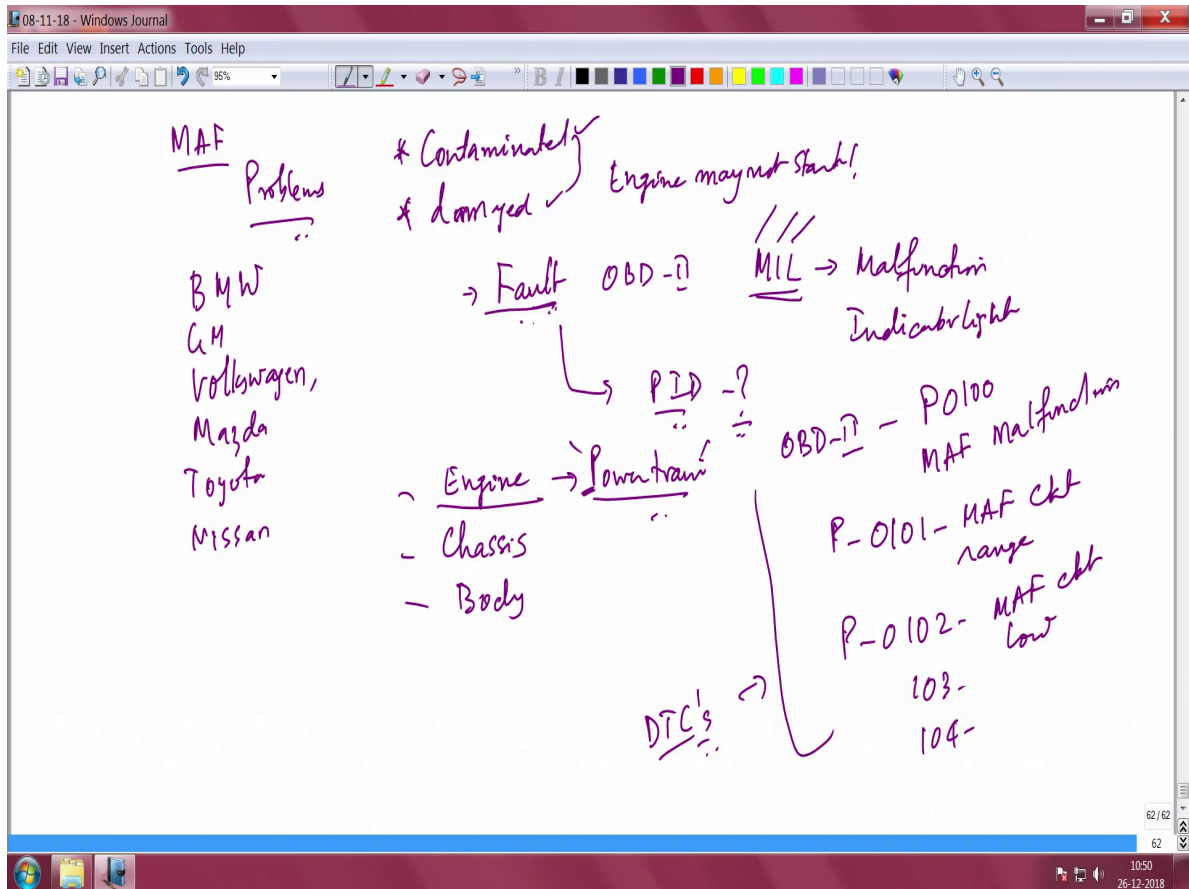 08-11-18 - Windows Journal
File Edit View Insert Actions Tools Help
95%
B I
MAF
Problems
* Contaminated
* damyed
Engine may not Start!
BMW
GM
Volkswagen,
Mazda
Toyota
Nissan
→ Fault OBD-II
MIL → Malfunction
Indicator light
PID -?
- Engine → 'Powertrain'
- Chassis
- Body
OBD-II - P0100
MAF Malfunction
P-0101- MAF ckt
range
P-0102- MAF ckt
low
103-
104-
DTC's →
62/62
62
10:50
26-12-2018